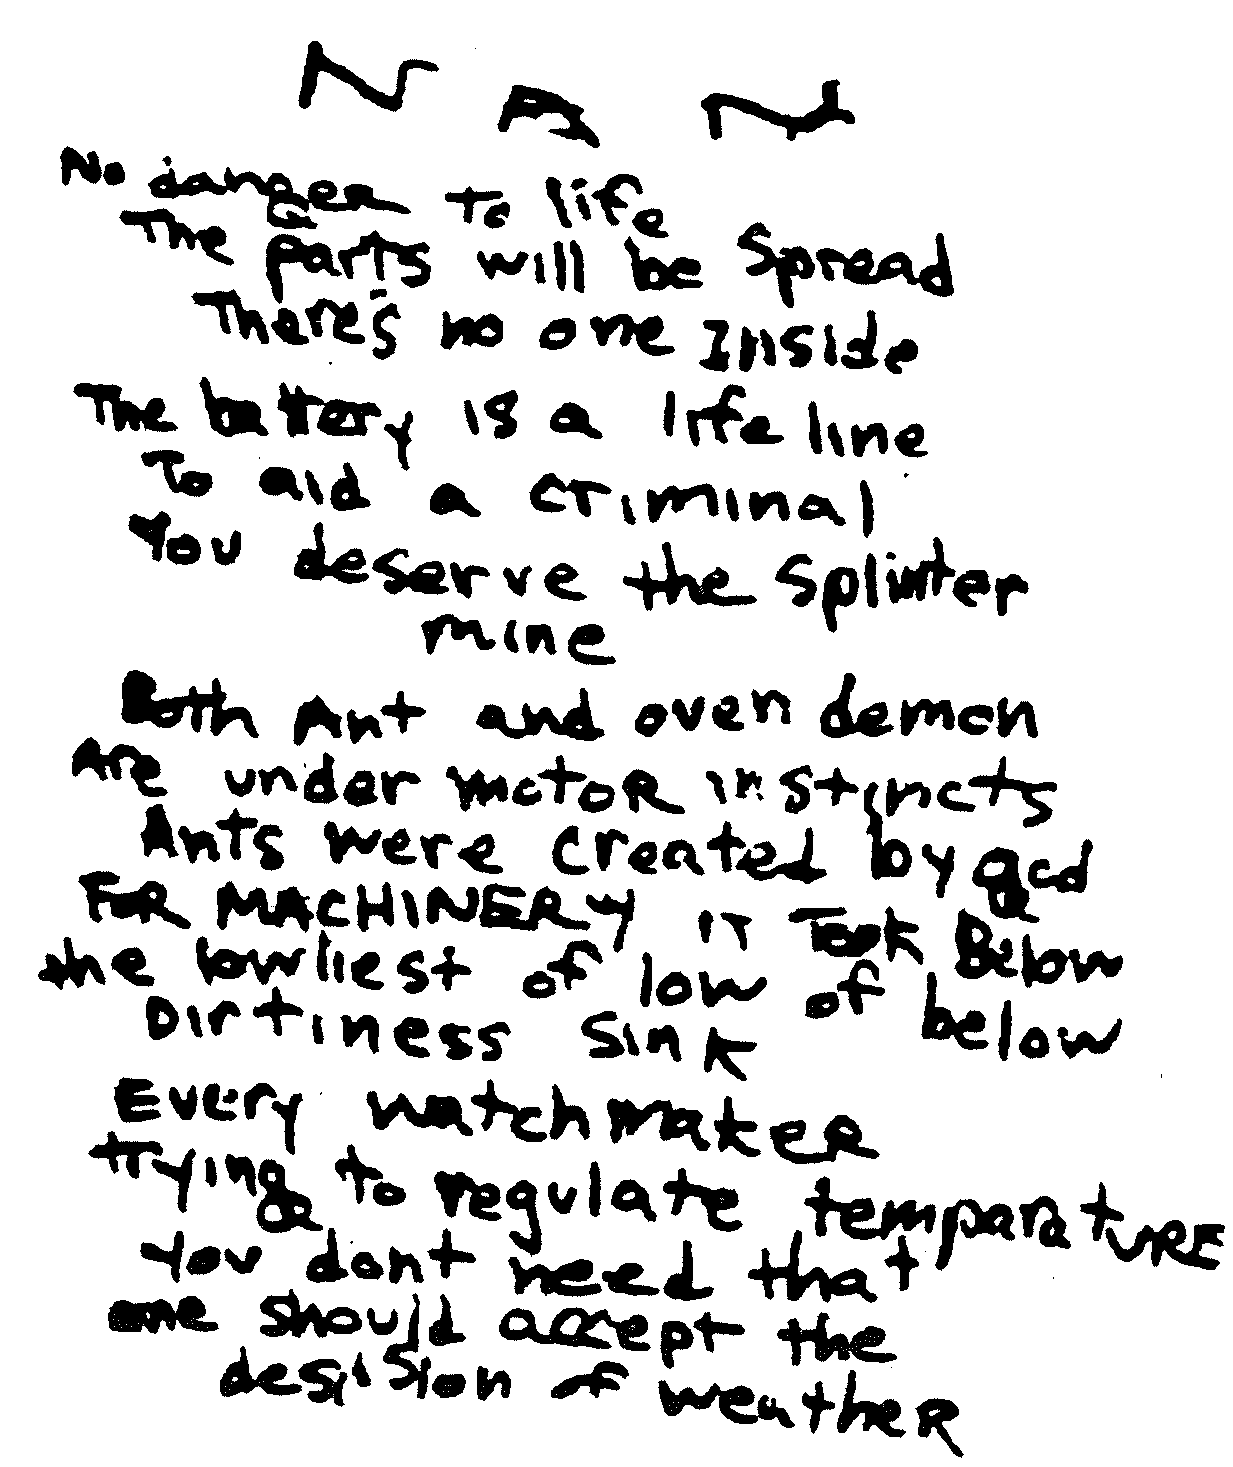 NAN
No danger to life
The parts will be Spread
There's no one Inside
The battery is a life line
To aid a criminal
You deserve the Splinter
mine
Both Ant and oven demon
Are under motoR instincts
Ants were created by god
FOR MACHINERY IT TOOK Below
the lowliest of low of below
Dirtiness Sink
Every watchmakeR
trying to regulate temparatURE
You dont need that
one should accept the
desision of weatheR